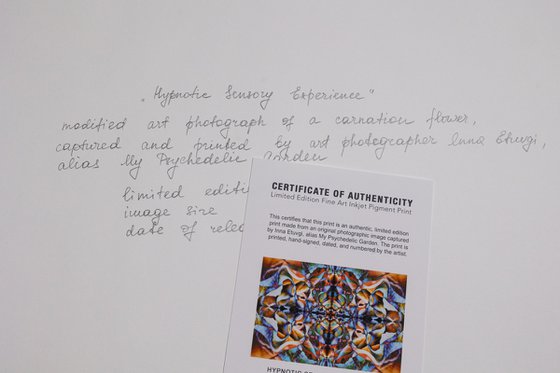 „Hypnotic Sensory Experience"
modified art photograph of a carnation flower,
captured and printed by art photographer Inna Etuvgi,
alias My Psychedelic Garden
limited editi
image size
date of relea
CERTIFICATE OF AUTHENTICITY
Limited Edition Fine Art Inkjet Pigment Print
This certifies that this print is an authentic, limited edition
print made from an original photographic image captured
by Inna Etuvgi, alias My Psychedelic Garden. The print is
printed, hand-signed, dated, and numbered by the artist.
HYPNOTIC